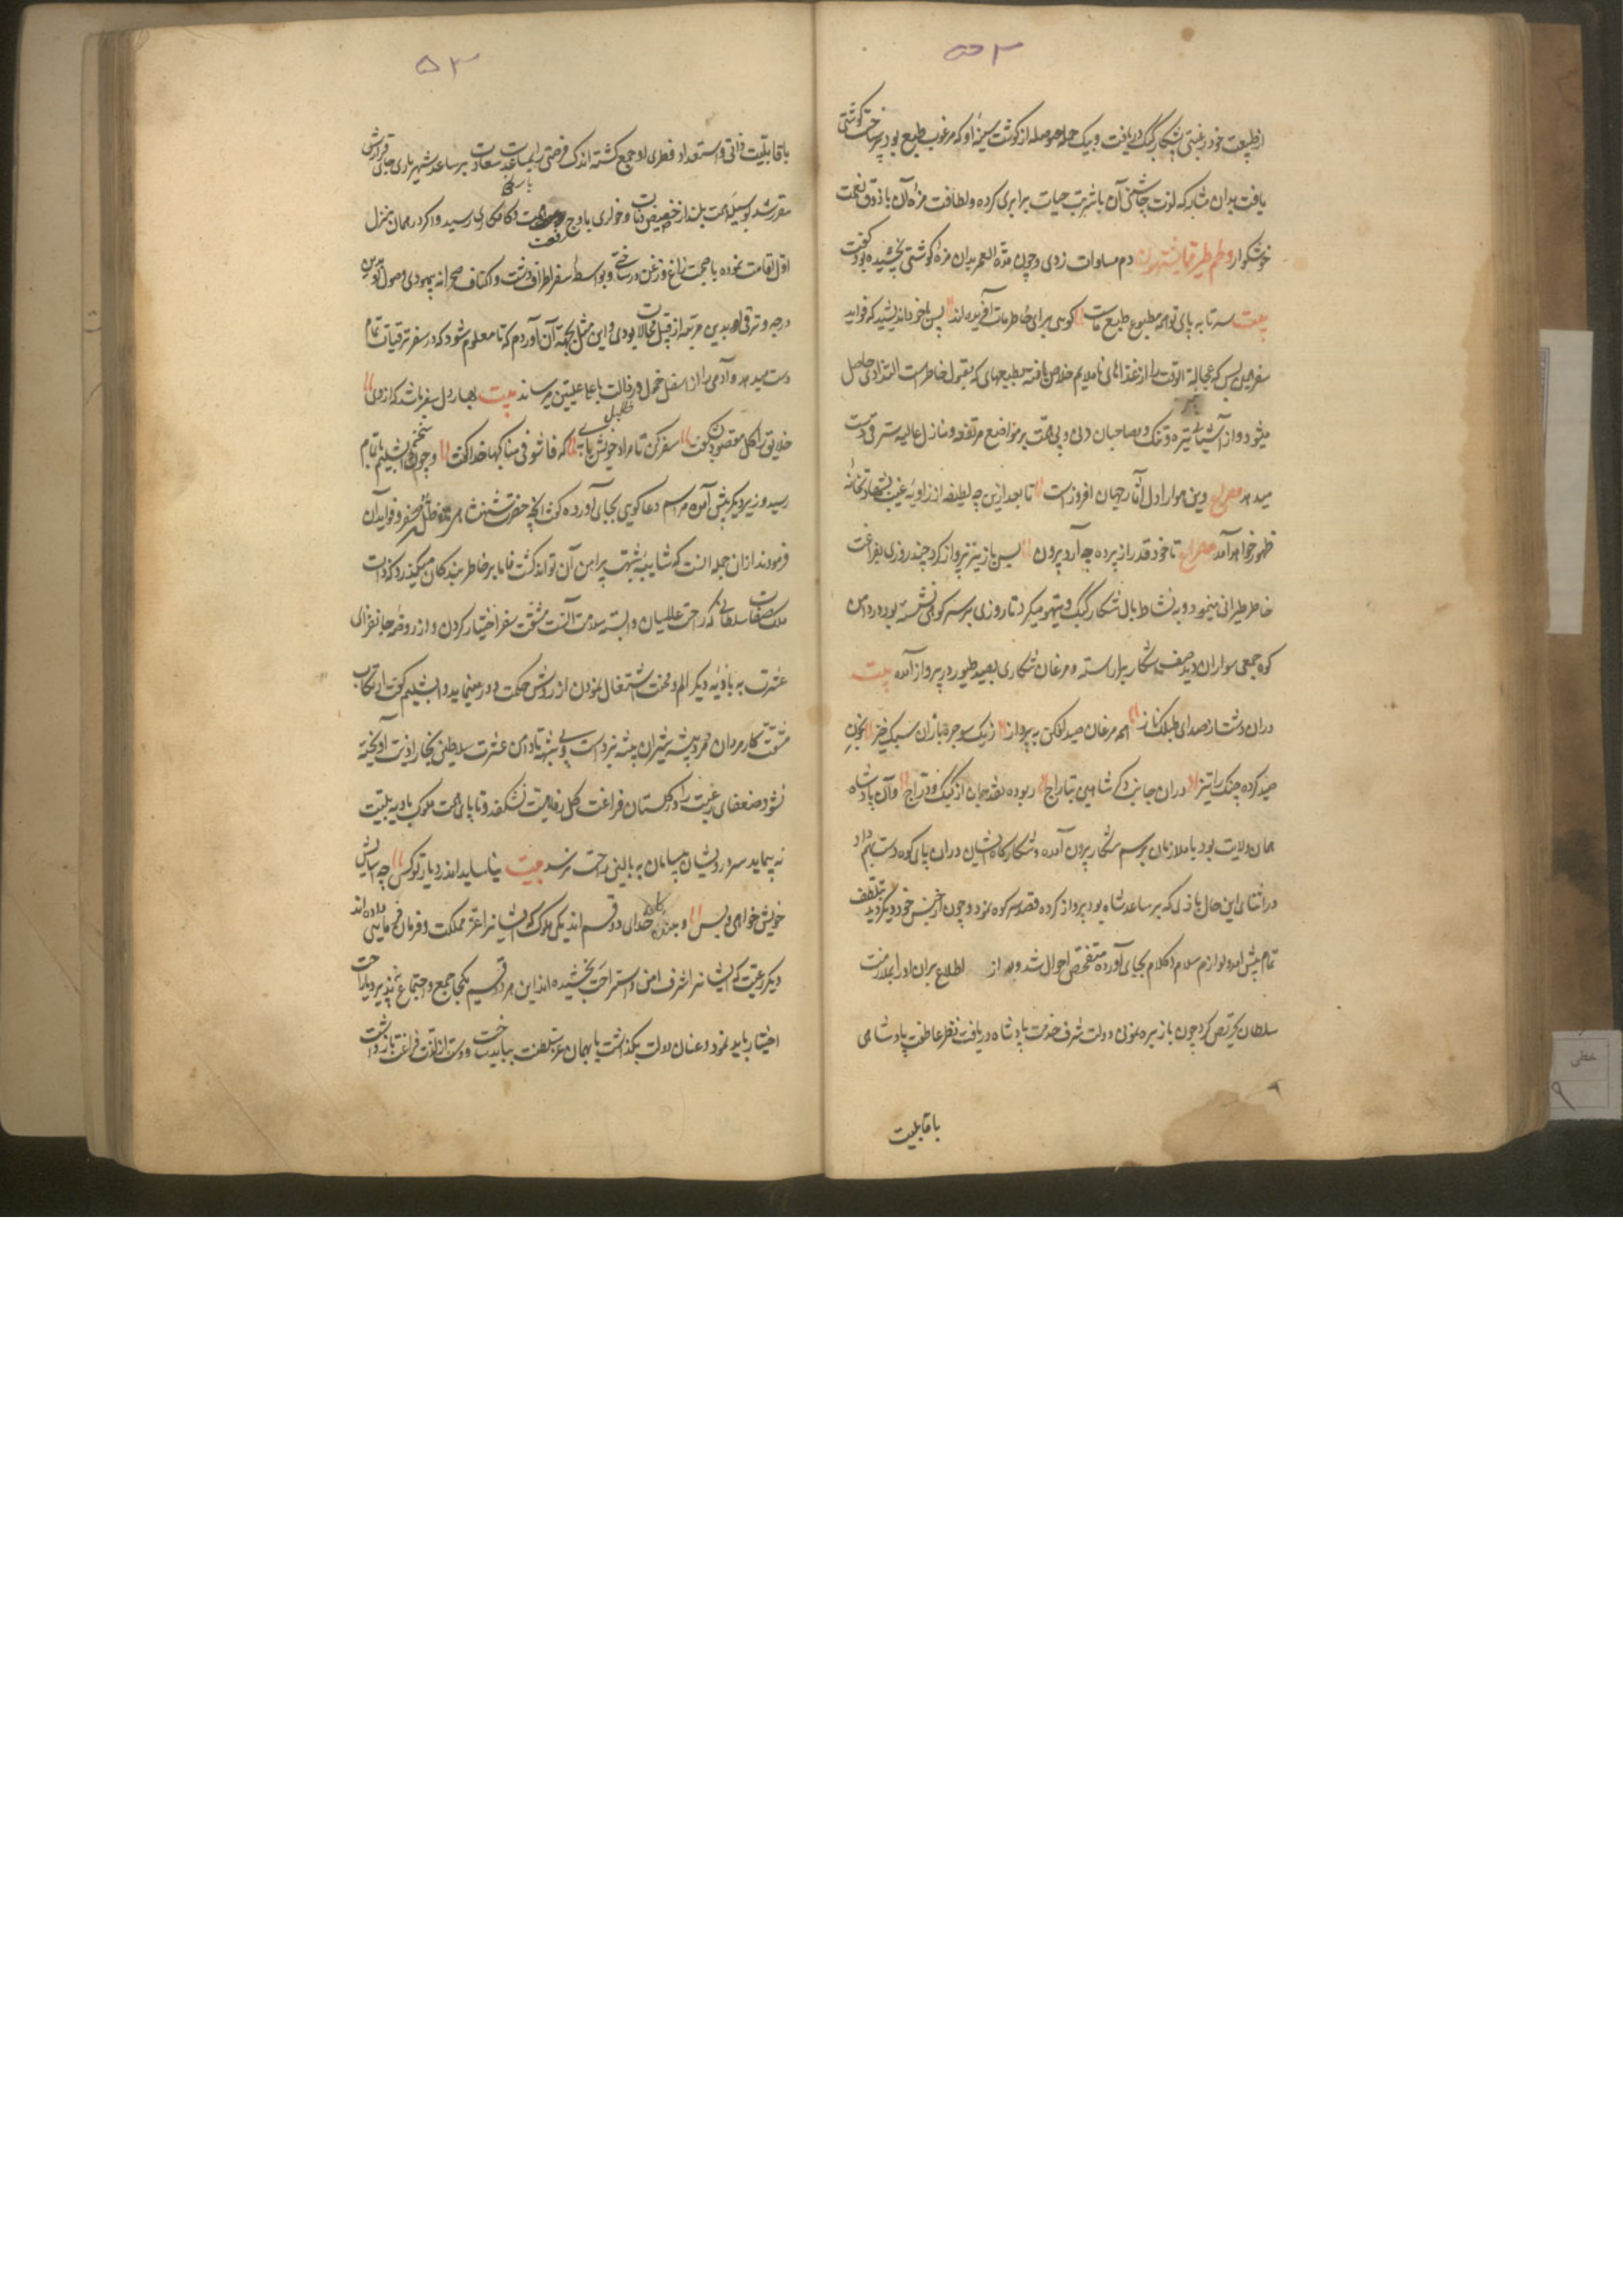 ۵۳
از طبیعت خود رغبتی بشکار کبک دریافت و بیک حمله حوصله از گوشت سینهٔ او که مرغوب طبع بود پر ساخت گوشتی
یافت بدان مثابه که لذت چاشنی آن با شربت حیات برابری کرده و لطافت مزهٔ آن با ذوق نعمت
خوشگوار و لحم طیر مما یشتهون دم مساوات زدی و چون مدة العمر بدان مزه گوشتی نچشیده بود گفت
بیت سر تا به پای تو همه مطبوع طبع ماست گویی برای خاطر ما آفریده‌اند پس با خود اندیشید که فواید
سفر همین بس که عجالة الوقت را از غذاهای ناملایم خلاص یافته بطعمهای که مقبول خاطر است التذاذی حاصل
میشود و از آشیانه تیره و تنگ و مصاحبان دنی و بی همت بر مواضع مرتفعه و منازل عالیه مشرفی دست
میدهد مصراع وین هموار ادل آثار جهان افروز است تا بعد ازین چه لطیفه از زاویهٔ غیب
ظهور خواهد آمد مصراع تا خود قدر از پرده چه آرد بیرون پس باز تیز پرواز کرد چند روزی بفراغت
خاطر طیرانی مینمود و به نشاط بال شکار کبک و تیهو میکرد تا روزی بر سر کوهی نشسته بود در دامن
کوه جمعی سواران دید صف شکار برآراسته و مرغان شکاری بصید طیور در پرواز آمده بیت
دران دشت از صدای طبلک ناز همه مرغان صید افکن به پرواز ز یک سو جره بازان سبک خیز بخون
صید کرده چنگ را تیز دران جانب دگر شاهین بتاراج ربوده نقد جان از کبک و دراج و آن پادشاه
همان ولایت بود با ملازمان برسم شکار بیرون آمده و شکارگاه ایشان دران پای کوه دست بهم داد
در اثنای این حال بازی که بر ساعد شاه بود پرواز کرده قصد سر کوه نمود و چون از جنس خود دیگر دید بتلطف
تمام پیش آمد و لوازم سلام و کلام بجای آورده متفحص احوال شد و بعد از اطلاع بران او را بملازمت
سلطان تحریص کرد چون باز بیره نمونی دولت شرف خدمت پادشاه دریافت نظر عاطفت پادشاهی
با قابلیت
۵۳
با قابلیت ذاتی و استعداد فطری او جمع گشته اندک فرصتی را بمساعدت سعادت بر ساعد شهریاری جای قرارش
مقرر شد بوسیله همت بلند از حضیض و خواری باوج رفعت و کامکاری رسید و اگر در همان منزل
اول اقامت نموده با صحبت زاغ و زغن در ساختی و بواسطه سفر اطراف دشت و اکناف صحرا نه پیمودی وصول او بدین
درجه و ترقی او بدین مرتبه از قبیل محالات بودی و این مثل بجهة آن آوردم که تا معلوم شود که در سفر ترقیات تمام
دست میدهد و آدمی را از اسفل خمول و رذالت باعلا علیین میرساند بیت بهار دل سفر باشد که از وی
خلایق را گل مقصود بشکفت سفر کن تا مراد خویش یابی که فامشوا فی مناکبها خدا گفت و چون سخن دابشلیم باتمام
رسید وزیر دیگر پیش آمده مراسم دعا گویی بجای آورده گفت آنچه حضرت شهنشاه در فضیلت سفر و فواید آن
فرمودند ازان جمله است که شایبه شبهت پیرامن آن تواند گشت فاما بر خاطر بندگان میگذرد که ذات
ملک صفات سلطانی که راحت عالمیان وابسته سلامت آنست مشقت سفر اختیار کردن و از روضه جانفزای
عشرت به بادیه دیگر الم و محنت اشتغال نمودن از روش حکمت دور مینماید دابشلیم گفت ارتکاب
مشقت کار مردان مرد و پیشه شیران بیشه نبرد است و بی شبهه تا دامن عشرت سلاطین بخار اذیت آویخته
نشود ضعفای رعیت را در گلستان فراغت گل رفاهیت نشکفد و تا پای همت ملوک بادیه بلیت
نه پیماید سر درویشان بی سامان به بالین راحت نرسد بیت نیاساید اندر دیار تو کس چو آسایش
خویش خواهی و بس و خدای دو قسم اند یکی ملوک که ایشانرا عز مملکت و فرمان فرمایی داده اند
دیگر رعیت که ایشانرا شرف امن و استراحت بخشیده اند این هر دو قسم یکجا جمع و اجتماع نپذیرد یا راحت
اختیار باید نمود و عنان دولت بگذاشت یا بهمان عز سلطنت بباید ساخت و دست از لذت فراغت باز داشت